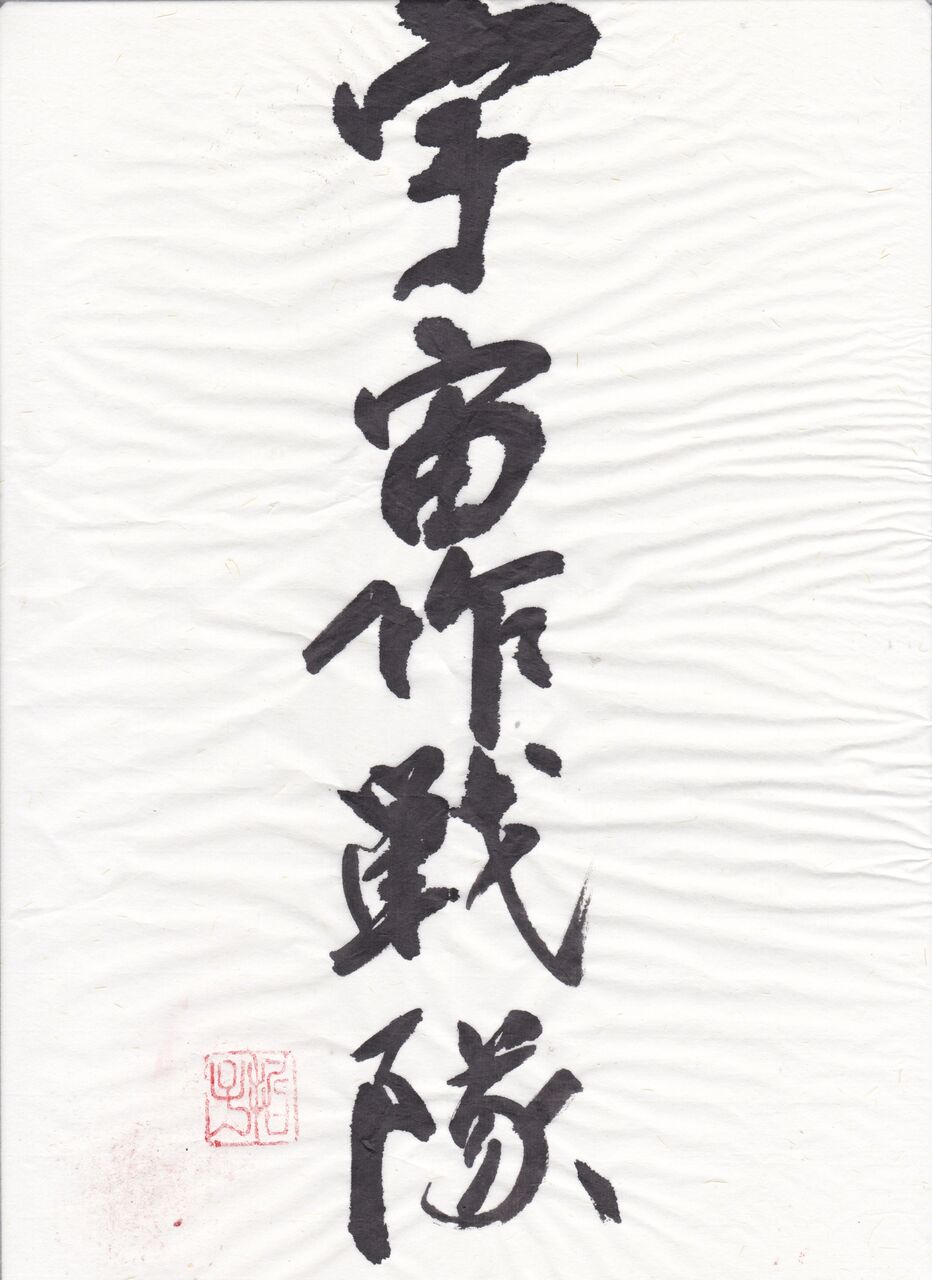 宇宙作戦隊